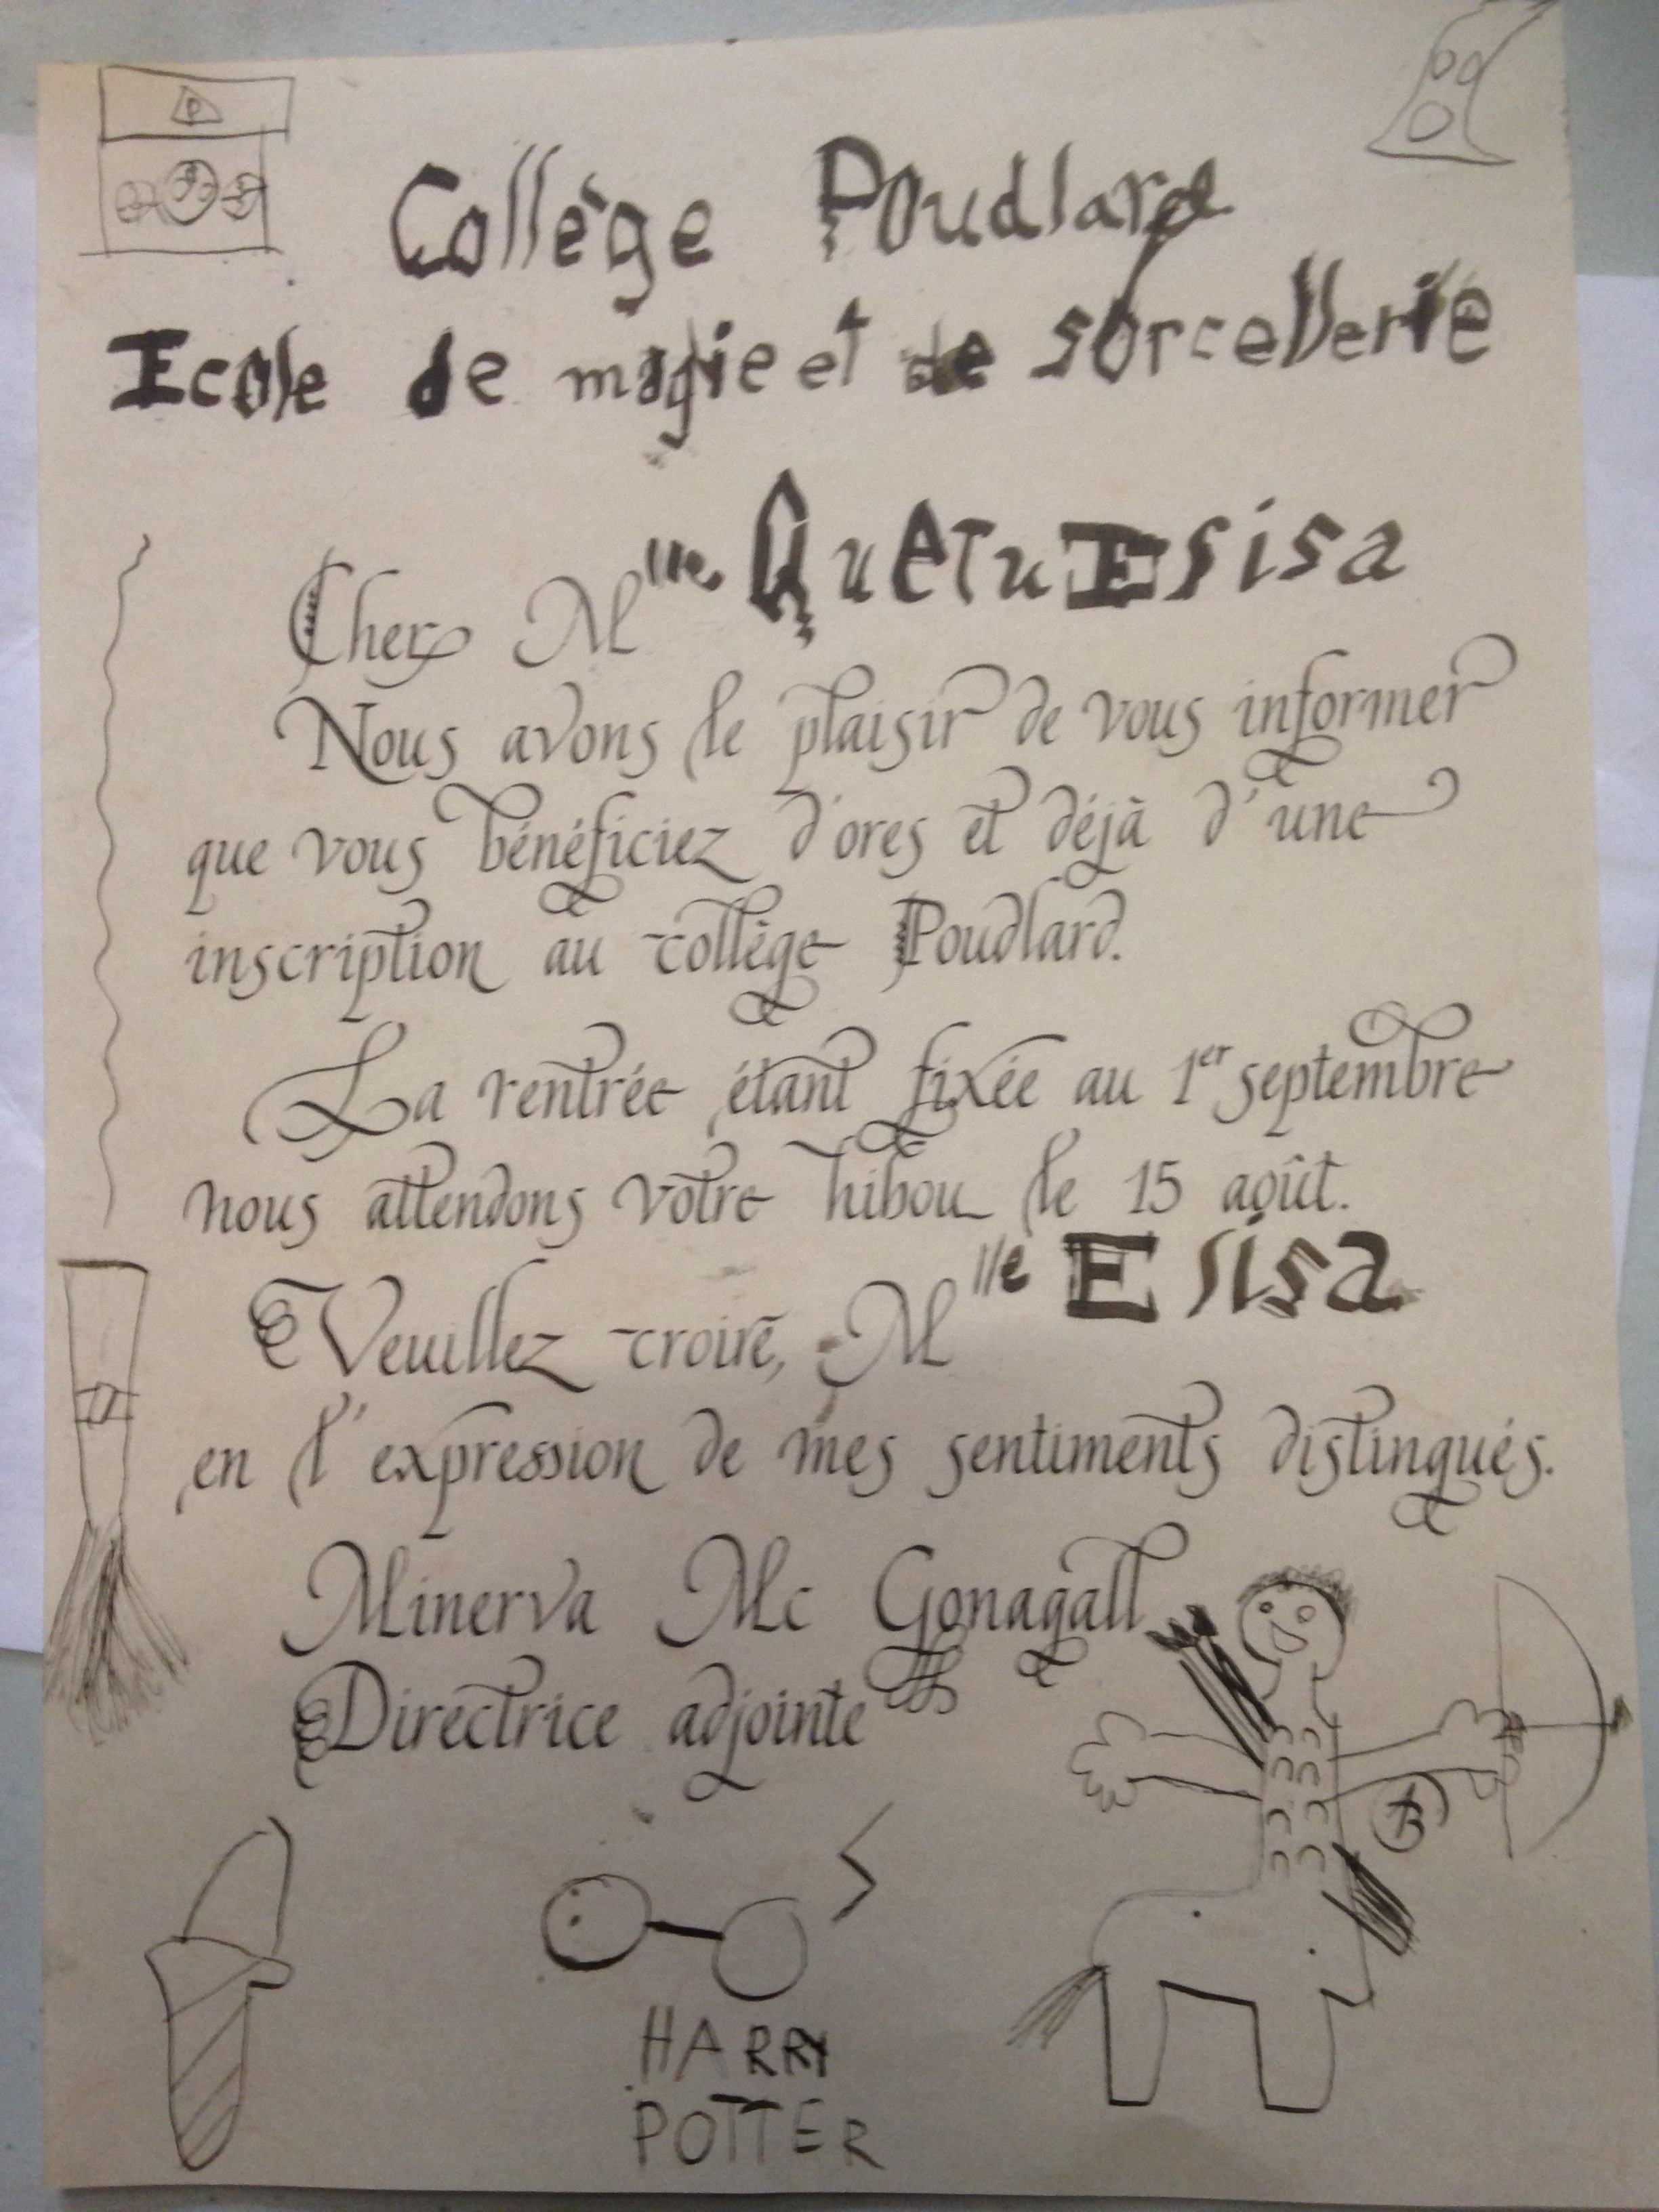 P
Collège Poudlard
Ecole de magie et de sorcellerie
Cher Mlle Quetu Elisa
Nous avons le plaisir de vous informer
que vous bénéficiez d'ores et déjà d'une
inscription au collège Poudlard.
La rentrée étant fixée au 1er septembre
nous attendons votre hibou le 15 août.
Veuillez croire, Mlle Elisa
en l'expression de mes sentiments distingués.
Minerva Mc Gonagall
Directrice adjointe
HARRY
POTTER